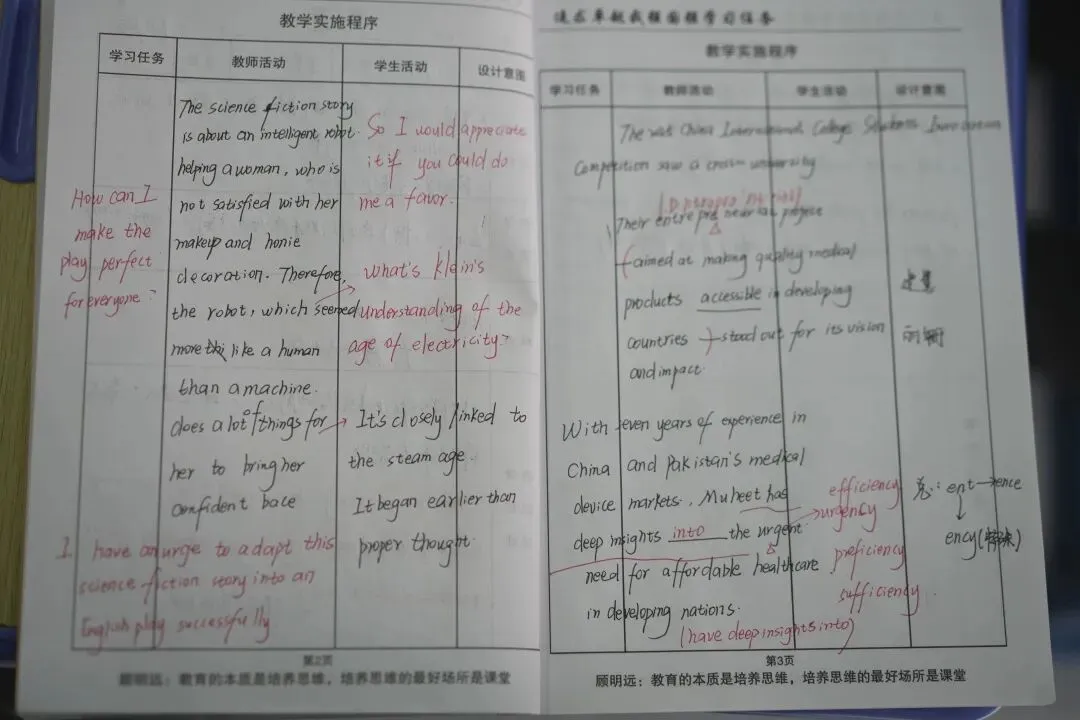 教学实施程序
学习任务 教师活动 学生活动 设计意图
The science fiction story
is about an intelligent robot.
helping a woman, who is
not satisfied with her
makeup and home
decoration. Therefore,
the robot, which seemed
more like a human
than a machine.
does a lot of things for
her to bring her
confident back
So I would appreciate
it if you could do
me a favor.
What's Klein's
understanding of the
age of electricity?
It's closely linked to
the steam age.
It began earlier than
proper thought.
How can I
make the
play perfect
for everyone?
I have an urge to adapt this
science fiction story into an
English play successfully
第2页
顾明远：教育的本质是培养思维，培养思维的最好场所是课堂
教学实施程序
学习任务 教师活动 学生活动 设计意图
The China International College Students Innovation
Competition saw a university
Their entrepreneurial project
aimed at making quality medical
products accessible in developing
countries stood out for its vision
and impact.
With seven years of experience in
China and Pakistan's medical
device markets. Muheet has
deep insights into the urgent
need for affordable healthcare
in developing nations.
(have deep insights into)
efficiency
urgency
proficiency
sufficiency.
ent→ence
ency
第3页
顾明远：教育的本质是培养思维，培养思维的最好场所是课堂